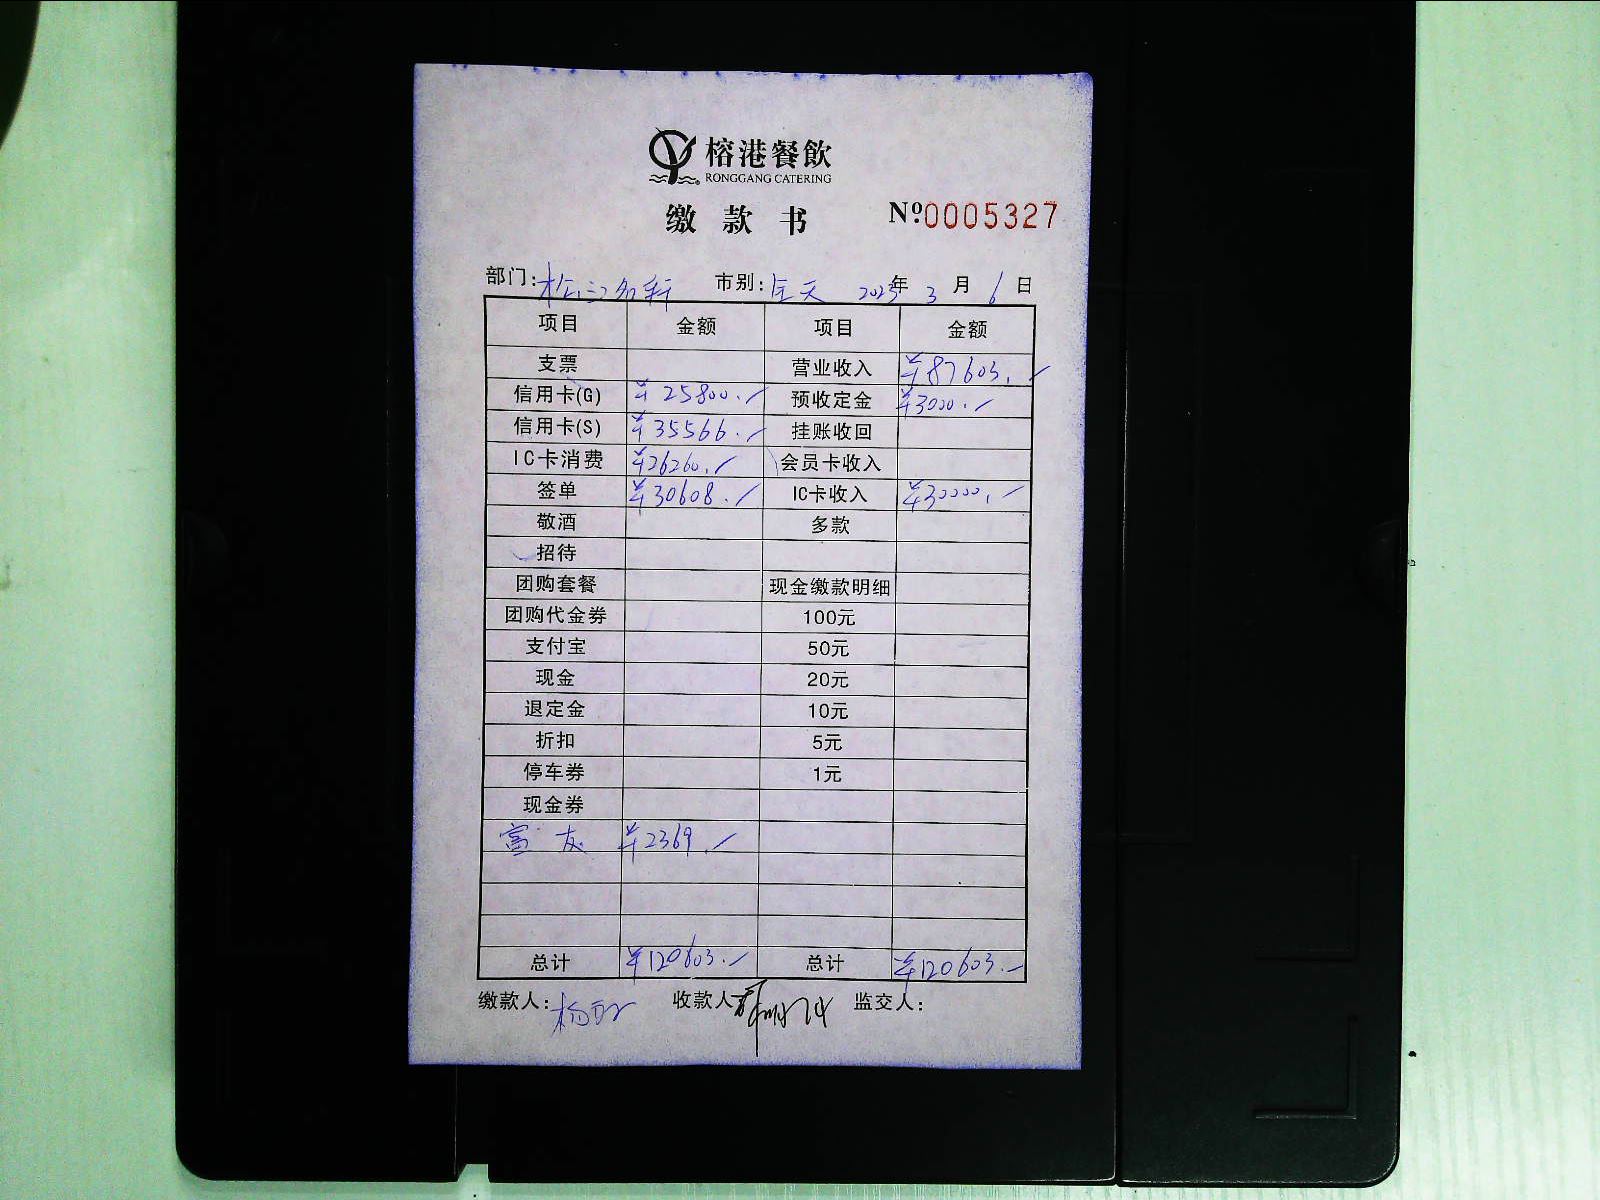 榕港餐飲
RONGGANG CATERING
缴款书 №0005327
部门: 松江名轩 市别: 全天 2023年3月6日
项目 金额 项目 金额
支票 营业收入 ¥87603.
信用卡(G) ¥25800. 预收定金 ¥3000.
信用卡(S) ¥35566. 挂账收回
IC卡消费 ¥26260. 会员卡收入
签单 ¥30608. IC卡收入 ¥30000.
敬酒 多款
招待
团购套餐 现金缴款明细
团购代金券 100元
支付宝 50元
现金 20元
退定金 10元
折扣 5元
停车券 1元
现金券
富友 ¥2369.
总计 ¥120603. 总计 ¥120603.
缴款人: 收款人 监交人: